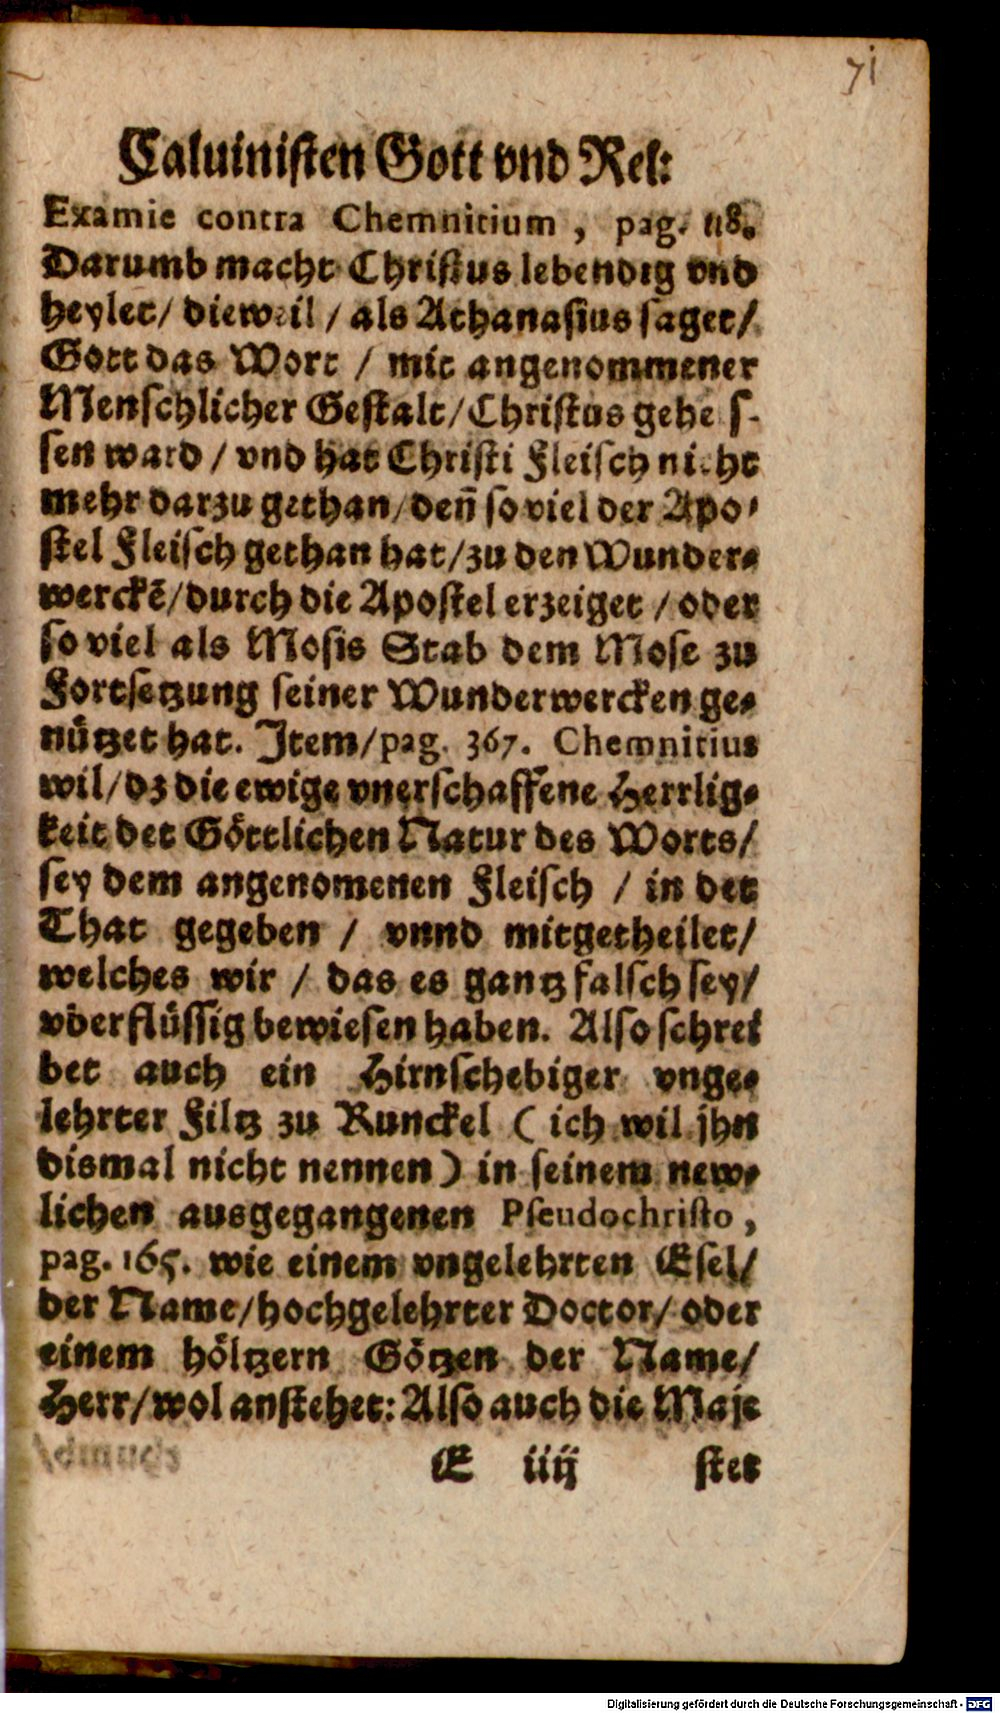 71
Caluinisten Gott vnd Rel:
Examie contra Chemnitium, pag. 118.
Darumb macht Christus lebendig vnd
heylet/ dieweil / als Athanasius saget/
Gott das Wort / mit angenommener
Menschlicher Gestalt/Christus gehe s-
sen ward / vnd hat Christi Fleisch nicht
mehr darzu gethan/deñ so viel der Apo-
stel Fleisch gethan hat/zu den Wunder-
werckẽ/durch die Apostel erzeiget / oder
so viel als Mosis Stab dem Mose zu
Fortsetzung seiner Wunderwercken ge-
nützet hat. Item/pag. 367. Chemnitius
wil/dz die ewige vnerschaffene Herrlig-
keit der Göttlichen Natur des Worts/
sey dem angenomenen Fleisch / in der
That gegeben / vnnd mitgetheilet/
welches wir / das es gantz falsch sey/
vberflüssig bewiesen haben. Also schrei
bet auch ein Hirnschebiger vnge-
lehrter Filtz zu Runckel ( ich wil jhn
dismal nicht nennen) in seinem new-
lichen ausgegangenen Pseudochristo,
pag. 165. wie einem vngelehrten Esel/
der Name/hochgelehrter Doctor/ oder
einem höltzern Götzen der Name/
Herr/wol anstehet: Also auch die Maje
E iiij stet
Digitalisierung gefördert durch die Deutsche Forschungsgemeinschaft - DFG